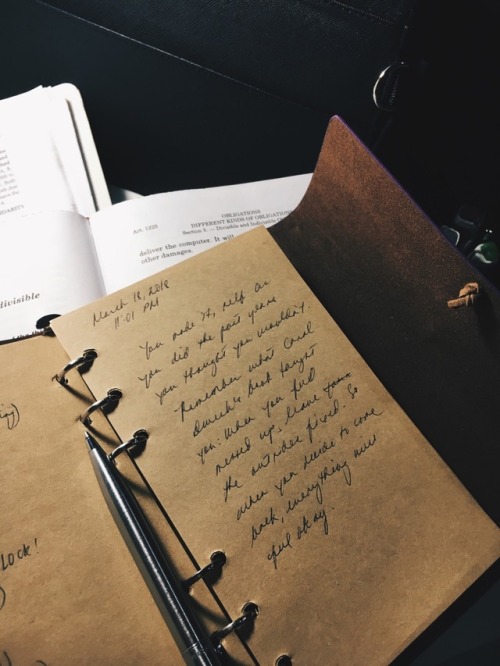 DARITY
divisible
Art. 1225
OBLIGATIONS
DIFFERENT KINDS OF OBLIGATIONS
Section 5. — Divisible and Indivisible
deliver the computer. It will
other damages.
LOCK!
March 18, 2018
11:01 PM
You made it, self. As
you did the past years
you thought you wouldn't.
Remember what Carol
book taught
you: When you feel
messed up, leave
the outside fixed. So
when you decide to come
back, everything will
feel okay.